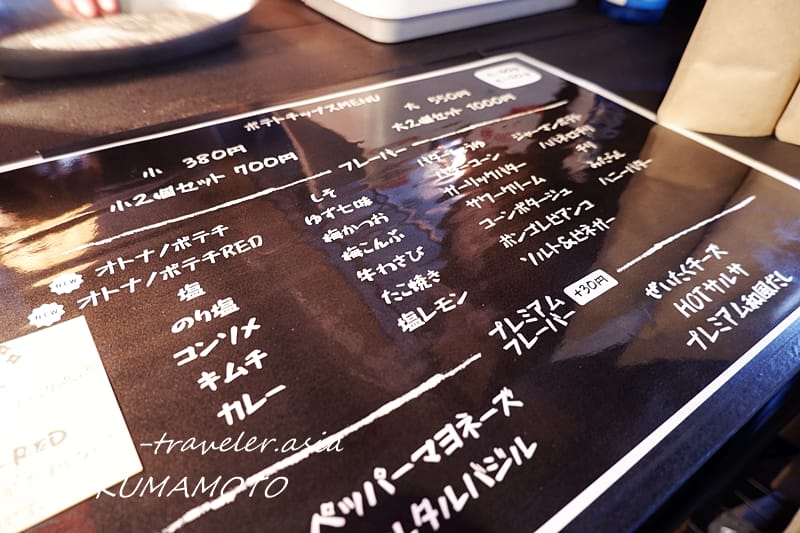 ポテトチップスMENU
小 380円
大 550円
小2個セット 700円
大2個セット 1000円
フレーバー
NEW オトナノポテチ
NEW オトナノポテチRED
塩
のり塩
コンソメ
キムチ
カレー
しそ
ゆず七味
梅かつお
梅こんぶ
牛わさび
たこ焼き
塩レモン
ガーリックバター
サワークリーム
コーンポタージュ
ボンゴレビアンコ
ソルト&ビネガー
ジャーマンポテト
チリ
ハニーバター
プレミアム
フレーバー
+30円
ぜいたくチーズ
HOTサルサ
プレミアム和風だし
ペッパーマヨネーズ
タルバジル
RED
-traveler.asia
KUMAMOTO